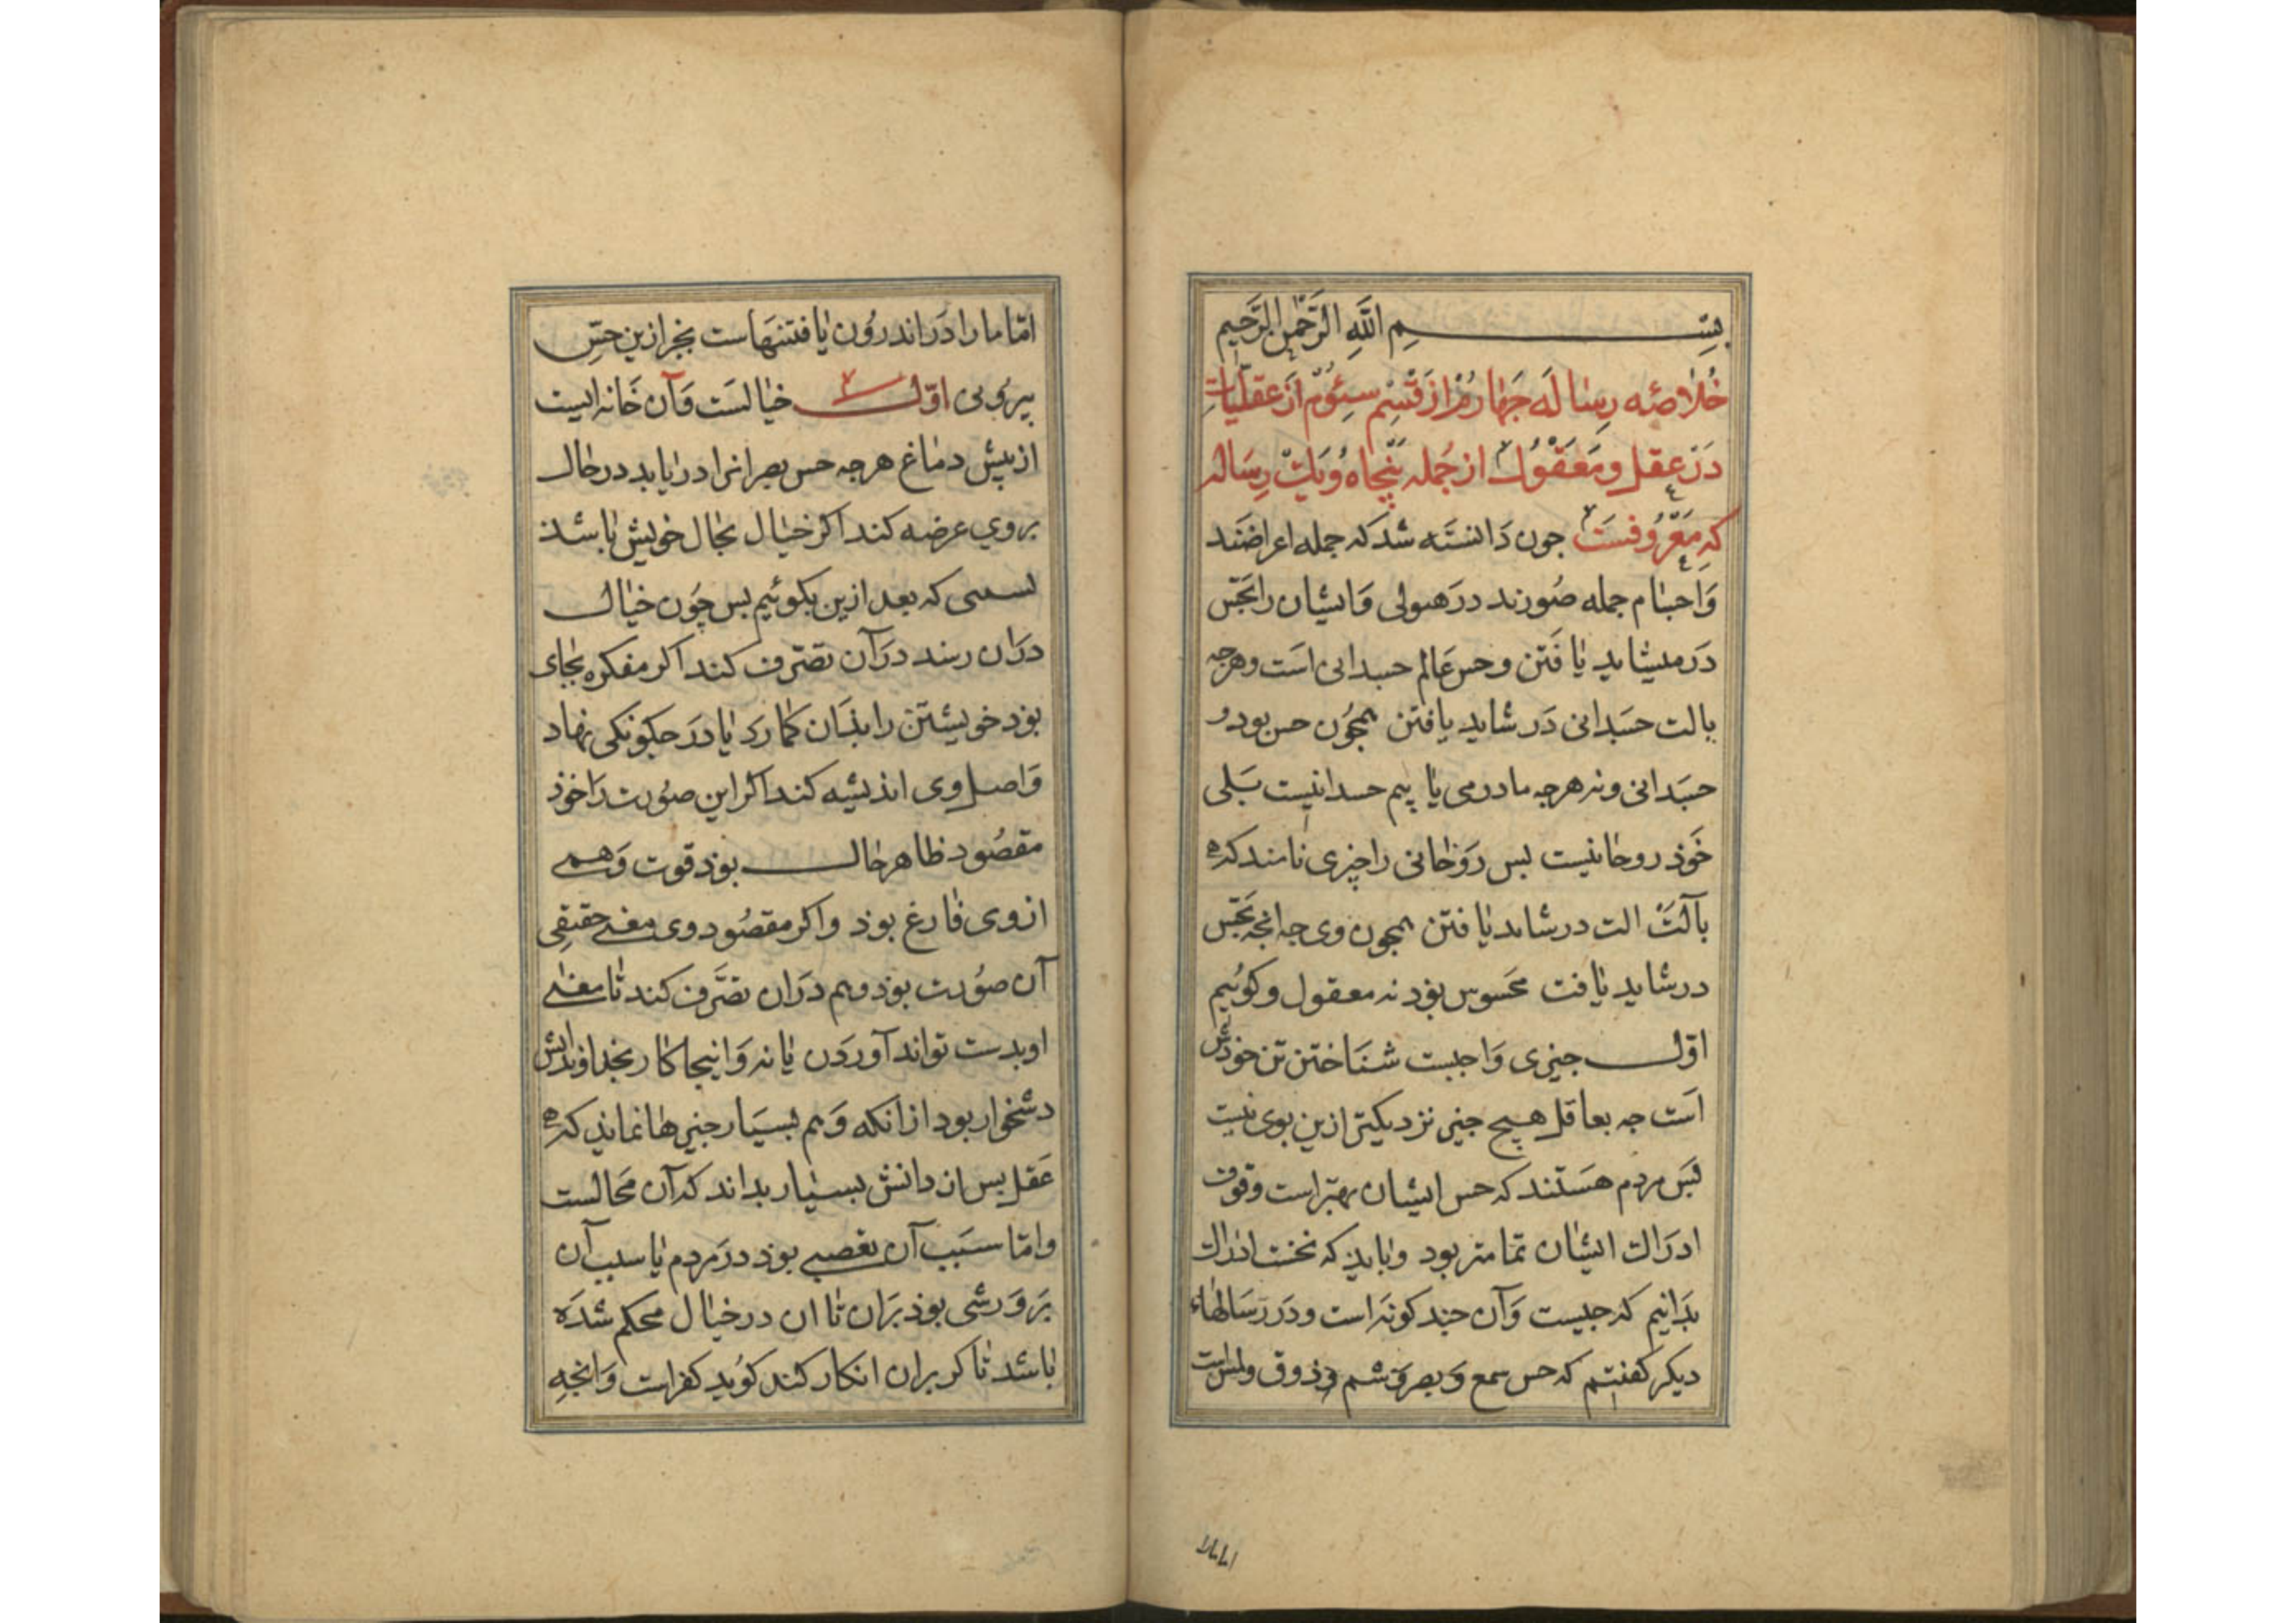 بسم الله الرحمن الرحیم
خلاصه رساله جهارم از قسم سئوم از عقلیات
در عقل و معقول از جمله پنجاه و یک رساله
که معروفست جون دانسته شد که جمله اعراضند
واجسام جمله صورند در هیولی وایشان را بحس
در میشاید یافتن وحس عالم جسدانی است وهرجه
بالت جسدانی در شاید یافتن همجون حس بود و
جسدانی ونه هرجه ما درمی یا بیم جسدانیست بلی
خوذ روحانیست بس روحانی را چیزی نامند که نه
بآلت الت درشاید یافتن همجون وی جه انچه بحس
درشاید یافت محسوس بوذ نه معقول و کوئیم
اوّل جیزی واجبست شناختن تن خوذش
است جه بعاقل هیچ جیز نزدیکتر ازین بوی نیست
بس مردم هستند که حس ایشان بهتر است وقوت
ادراک ایشان تمامتر بود وبایذ که نخست ادراک
بدانیم که جیست وآن جند کونه است ودر رسالهاء
دیکر کفتیم که حس سمع و بصر و شم و ذوق ولمس است
امّا ما را در اندرون یافتنهاست بجز ازین حسّ
بیرونی اوّل خیالست وآن خانه ایست
از پیش دماغ هرجه حس بصر انرا دریابد درحال
بروی عرضه کند اکر خیال بحال خویش باشذ
که بعد ازین بکوئیم بس چون خیال
دران رسد درآن تصرف کند اکر مفکره بجای
بوذ خویشتن را بذان کمارد یا در جکونکی نهاد
واصل وی اندیشه کند اکر این صورت را خوذ
مقصود ظاهر حال بوذ قوت وهمی
ازوی فارغ بوذ واکر مقصود وی معنی حقیقی
آن صورت بوذ وهم دران تصرف کند تا معنی
او بدست تواند آوردن یا نه وانیجا کار بخداوندانش
دشخوار بود از انکه وهم بسیار جیزها نماید که نه
عقل بس از دانش بسیار بداند که آن محالست
وامّا سبب آن تعصبی بوذ در مردم یا سبب آن
برورشی بوذ بران تا ان در خیال محکم شده
باشد تا کر بران انکار کند کوید کفر است وانجه